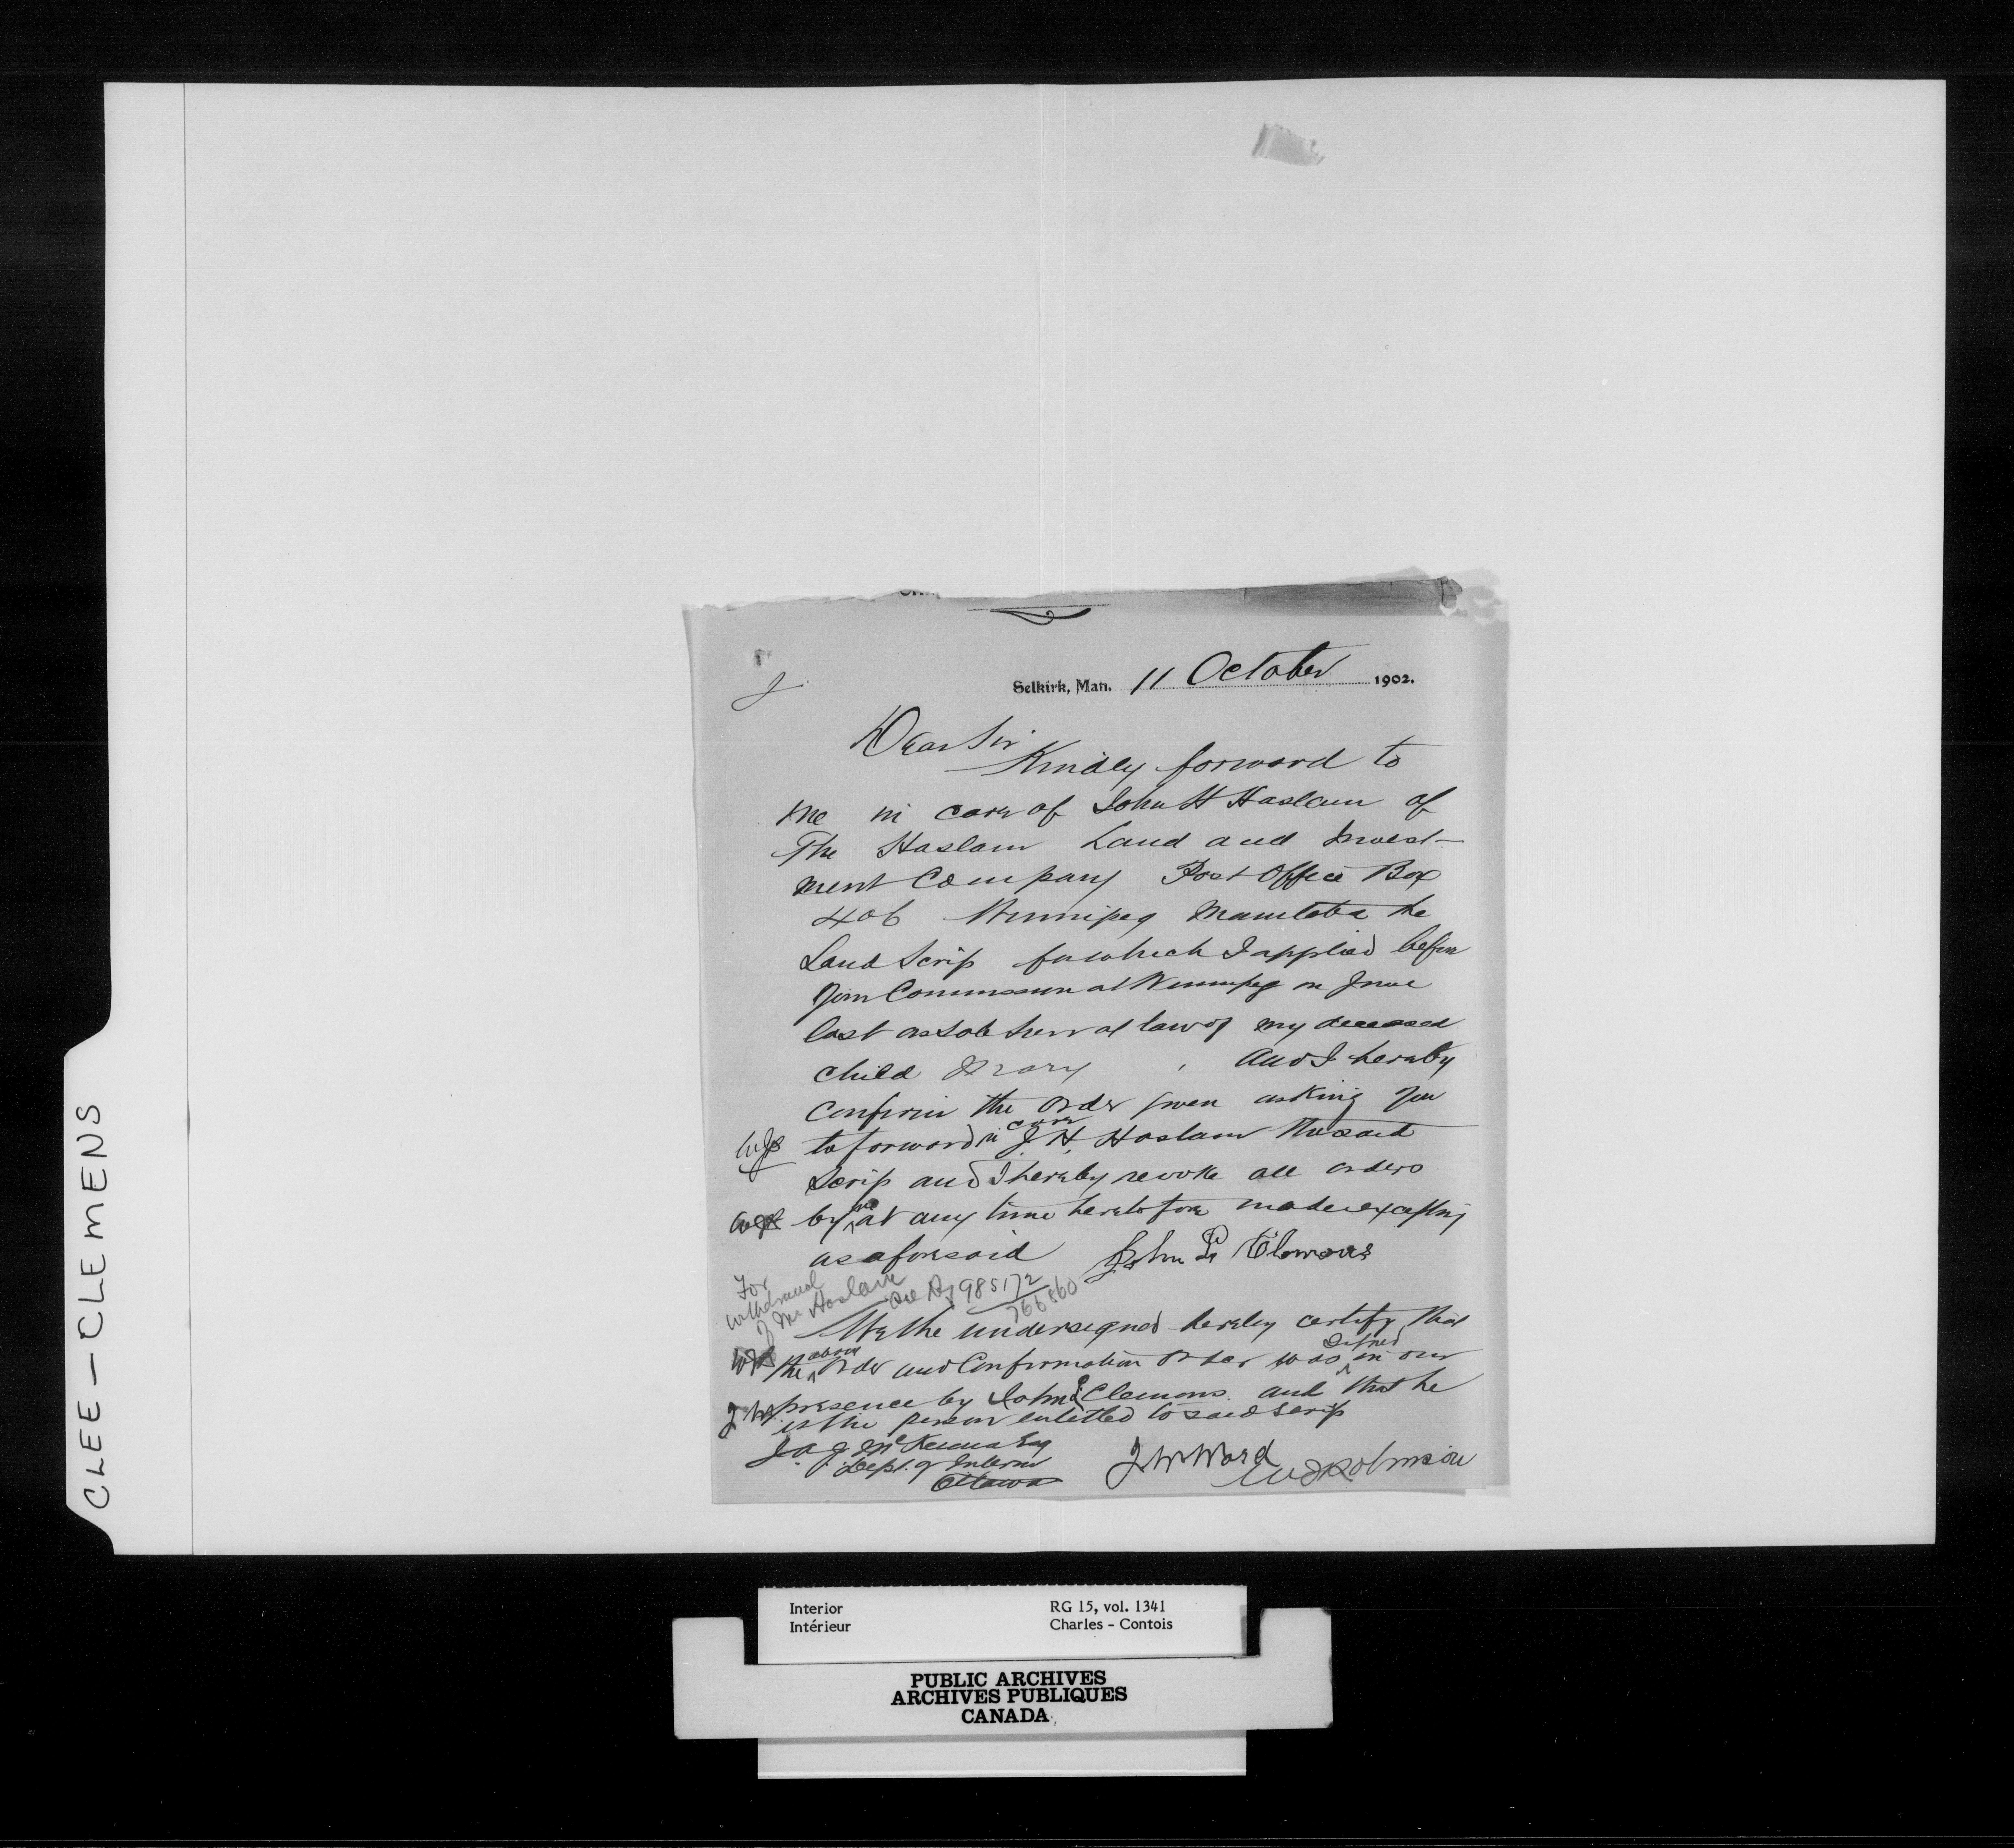 CLEE - CLEMENS
Selkirk, Man. 11 October 1902.
Dear Sir
Kindly forward to
me in care of John H Haslam of
The Haslam Land and Invest-
ment Company Post Office Box
406 Winnipeg Manitoba the
Land Scrip for which I applied before
your Commission at Winnipeg in June
last as sole heir at law of my deceased
child Mary , and I hereby
confirm the order given asking you
WJR to forward in care J. H. Haslam the said
Scrip and I hereby revoke all orders
WJR by me at any time heretofore made excepting
as aforesaid John P Clemons
For
withdrawal
of Mr Haslam
see Rf 985172
766560
We the undersigned hereby certify that
WJR the above order and Confirmation order was signed in our
J.W. presence by John P Clemons. and that he
is the person entitled to said scrip
J.A.J. McKenna Esq
Dept. of Interior
Ottawa
J W Ward
W J Robinson
Interior RG 15, vol. 1341
Intérieur Charles - Contois
PUBLIC ARCHIVES
ARCHIVES PUBLIQUES
CANADA